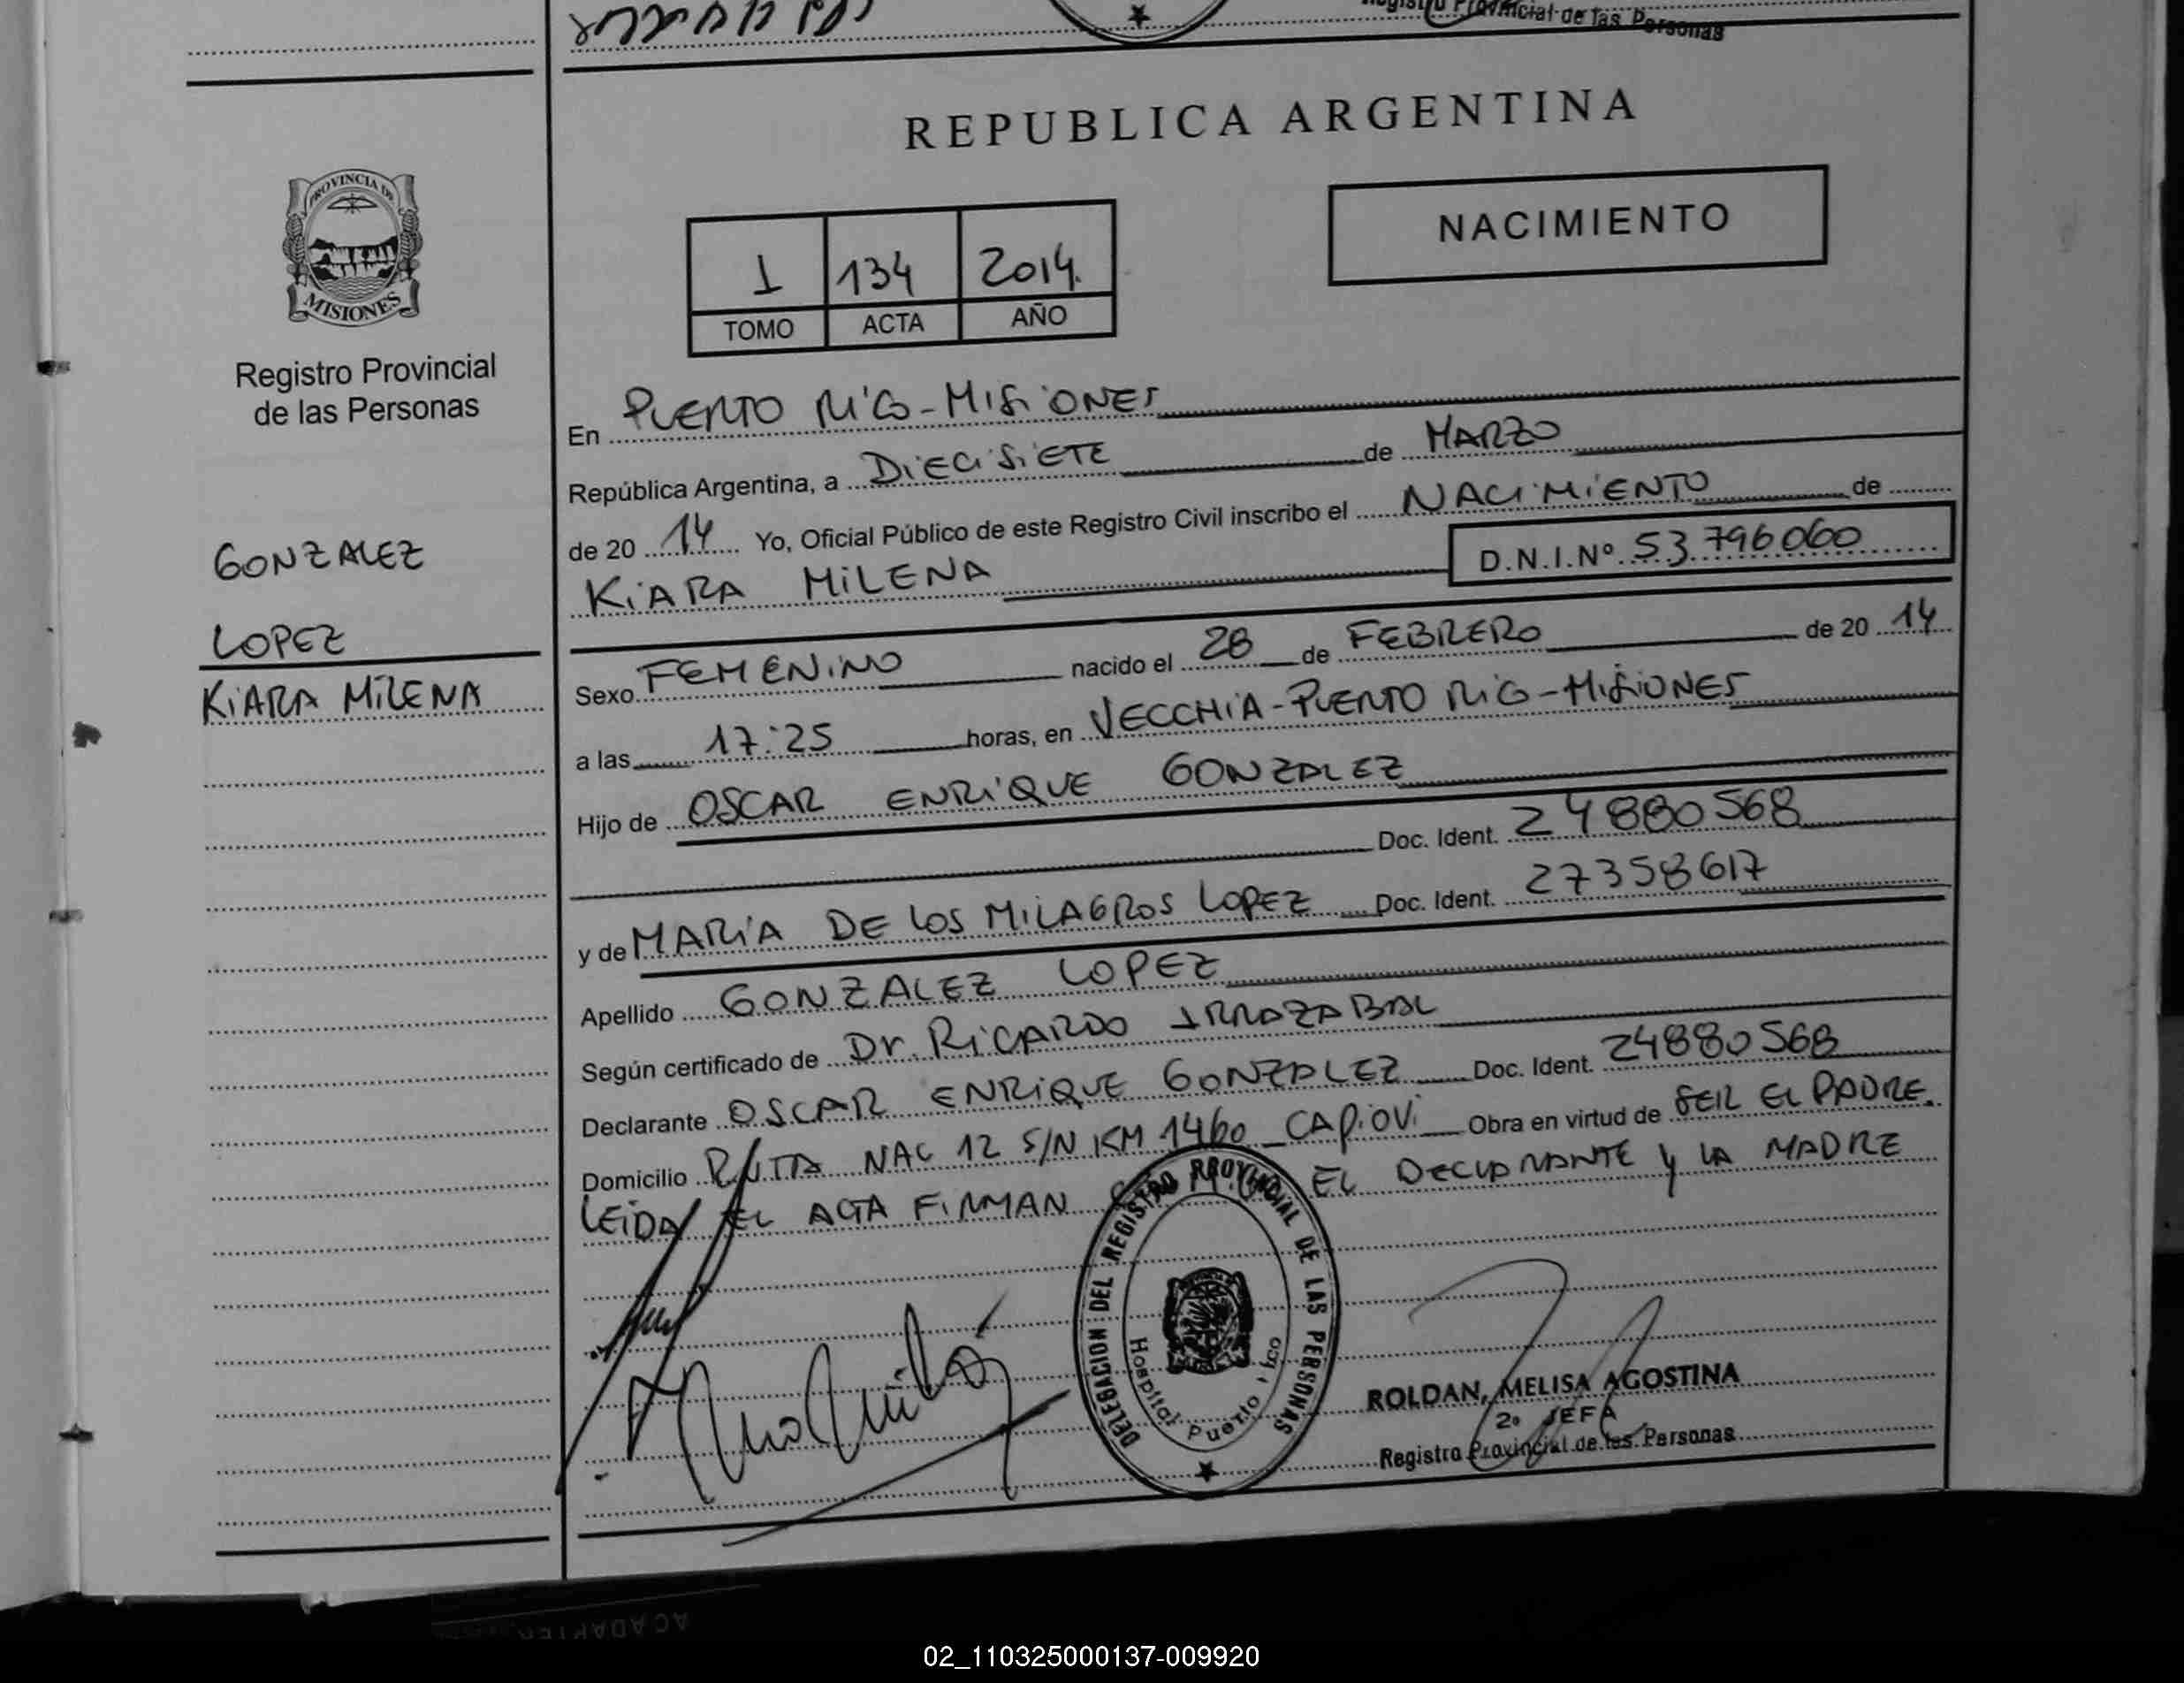 Registro Provincial de las Personas
REPUBLICA ARGENTINA
NACIMIENTO
PROVINCIA DE
MISIONES
1 134 2014.
TOMO ACTA AÑO
Registro Provincial
de las Personas
GONZALEZ
LOPEZ
KIARA MILENA
En PUERTO RICO - MISIONES
República Argentina, a DIECISIETE de MARZO
de 20 14 Yo, Oficial Público de este Registro Civil inscribo el NACIMIENTO de
KIARA MILENA D.N.I.Nº 53.796.060
Sexo FEMENINO nacido el 28 de FEBRERO de 20 14
a las 17:25 horas, en VECCHIA - PUERTO RICO - MISIONES
Hijo de OSCAR ENRIQUE GONZALEZ
Doc. Ident. 24880568
y de MARIA DE LOS MILAGROS LOPEZ Doc. Ident. 27358617
Apellido GONZALEZ LOPEZ
Según certificado de Dr. RICARDO IRRAZABAL
Declarante OSCAR ENRIQUE GONZALEZ Doc. Ident. 24880568
Domicilio RUTA NAC 12 S/N KM 1460 CAPIOVI Obra en virtud de SER EL PADRE.
LEIDA EL ACTA FIRMAN EL DECLARANTE Y LA MADRE
DELEGACION DEL REGISTRO PROVINCIAL DE LAS PERSONAS
Hospital Puerto Rico
ROLDAN, MELISA AGOSTINA
2º JEFA
Registro Provincial de las Personas
ACADAPTER
02_110325000137-009920